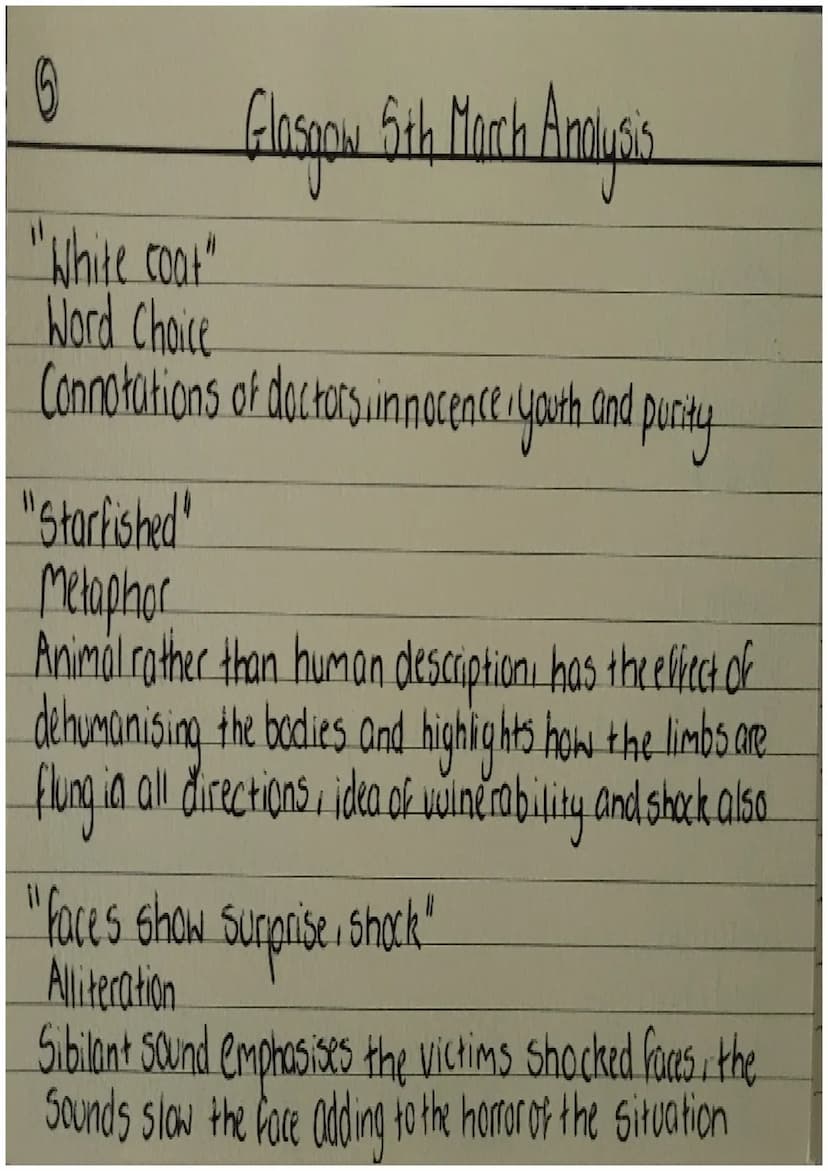 5
Glasgow 5th March Analysis
"White coat"
Word Choice
Connotations of doctors, innocence, youth and purity
"Starfished"
Metaphor
Animal rather than human description, has the effect of
dehumanising the bodies and highlights how the limbs are
flung in all directions, idea of vulnerability and shock also
"faces show surprise, shock"
Alliteration
Sibilant sound emphasises the victims shocked faces, the
sounds slow the face adding to the horror of the situation